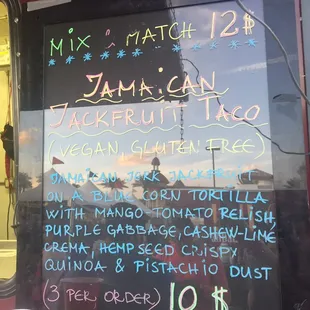 MIX & MATCH 12$
JAMAICAN
JACKFRUIT TACO
(VEGAN, GLUTEN FREE)
JAMAICAN JERK JACKFRUIT
ON A BLUE CORN TORTILLA
WITH MANGO-TOMATO RELISH,
PURPLE GABBAGE, CASHEW-LIME
CREMA, HEMPSEED CRISPY
QUINOA & PISTACHIO DUST
(3 PER ORDER) 10$